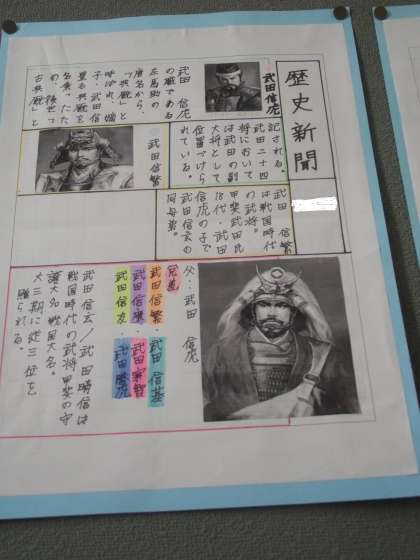 歴史新聞
武田信虎
武田 信虎
の職である
左馬助の
唐名から、
「典厩」と
呼ばれ、嫡
子・武田信
豊も典厩を
名乗ったた
め、後世「
古典厩」と
記される。
武田二十四
将において
は武田の副
大将として
位置づけら
れている。
武田信繁
武田 信繁
は戦国時代
の武将。
甲斐武田氏
18代・武田
信虎の子で
武田信玄の
同母弟。
父:武田 信虎
兄弟
武田信繁:武田 信基
武田信廉:武田宗智
武田信友:武田勝虎
武田信玄/武田晴信は
戦国時代の武将、甲斐の守
護大名・戦国大名。
大正期に従三位を
贈られる。